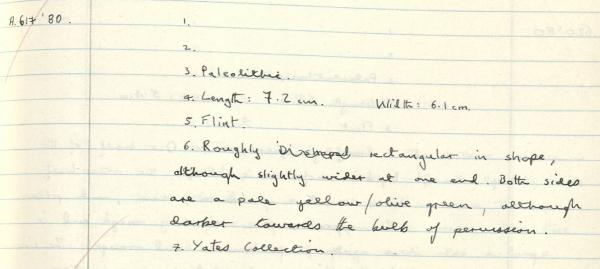 A.617'80.
1.
2.
3. Paleolithic.
4. Length: 7.2 cm. Width: 6.1 cm.
5. Flint.
6. Roughly rectangular in shape,
although slightly wider at one end. Both sides
are a pale yellow/olive green, although
darker towards the bulb of percussion.
7. Yates Collection.